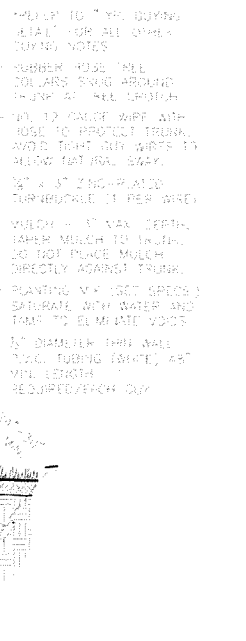 *REFER TO "TYP. GUYING
DETAIL" FOR ALL OTHER
GUYING NOTES
RUBBER HOSE TREE
COLLARS SNUG AROUND
TRUNK AT TREE CROTCH
NO. 12 GAUGE WIRE WITH
HOSE TO PROTECT TRUNK.
AVOID TIGHT GUY WIRES TO
ALLOW NATURAL SWAY.
X 3" ZINC-PLATED
TURNBUCKLE (1 PER WIRE)
MULCH - 3" MAX. DEPTH.
TAPER MULCH TO TRUNK.
DO NOT PLACE MULCH
DIRECTLY AGAINST TRUNK.
PLANTING MIX (SEE SPECS.)
SATURATE WITH WATER AND
TAMP TO ELIMINATE VOIDS
½" DIAMETER THIN WALL
P.V.C. TUBING (WHITE) 48"
MIN. LENGTH
REQUIRED/EACH GUY